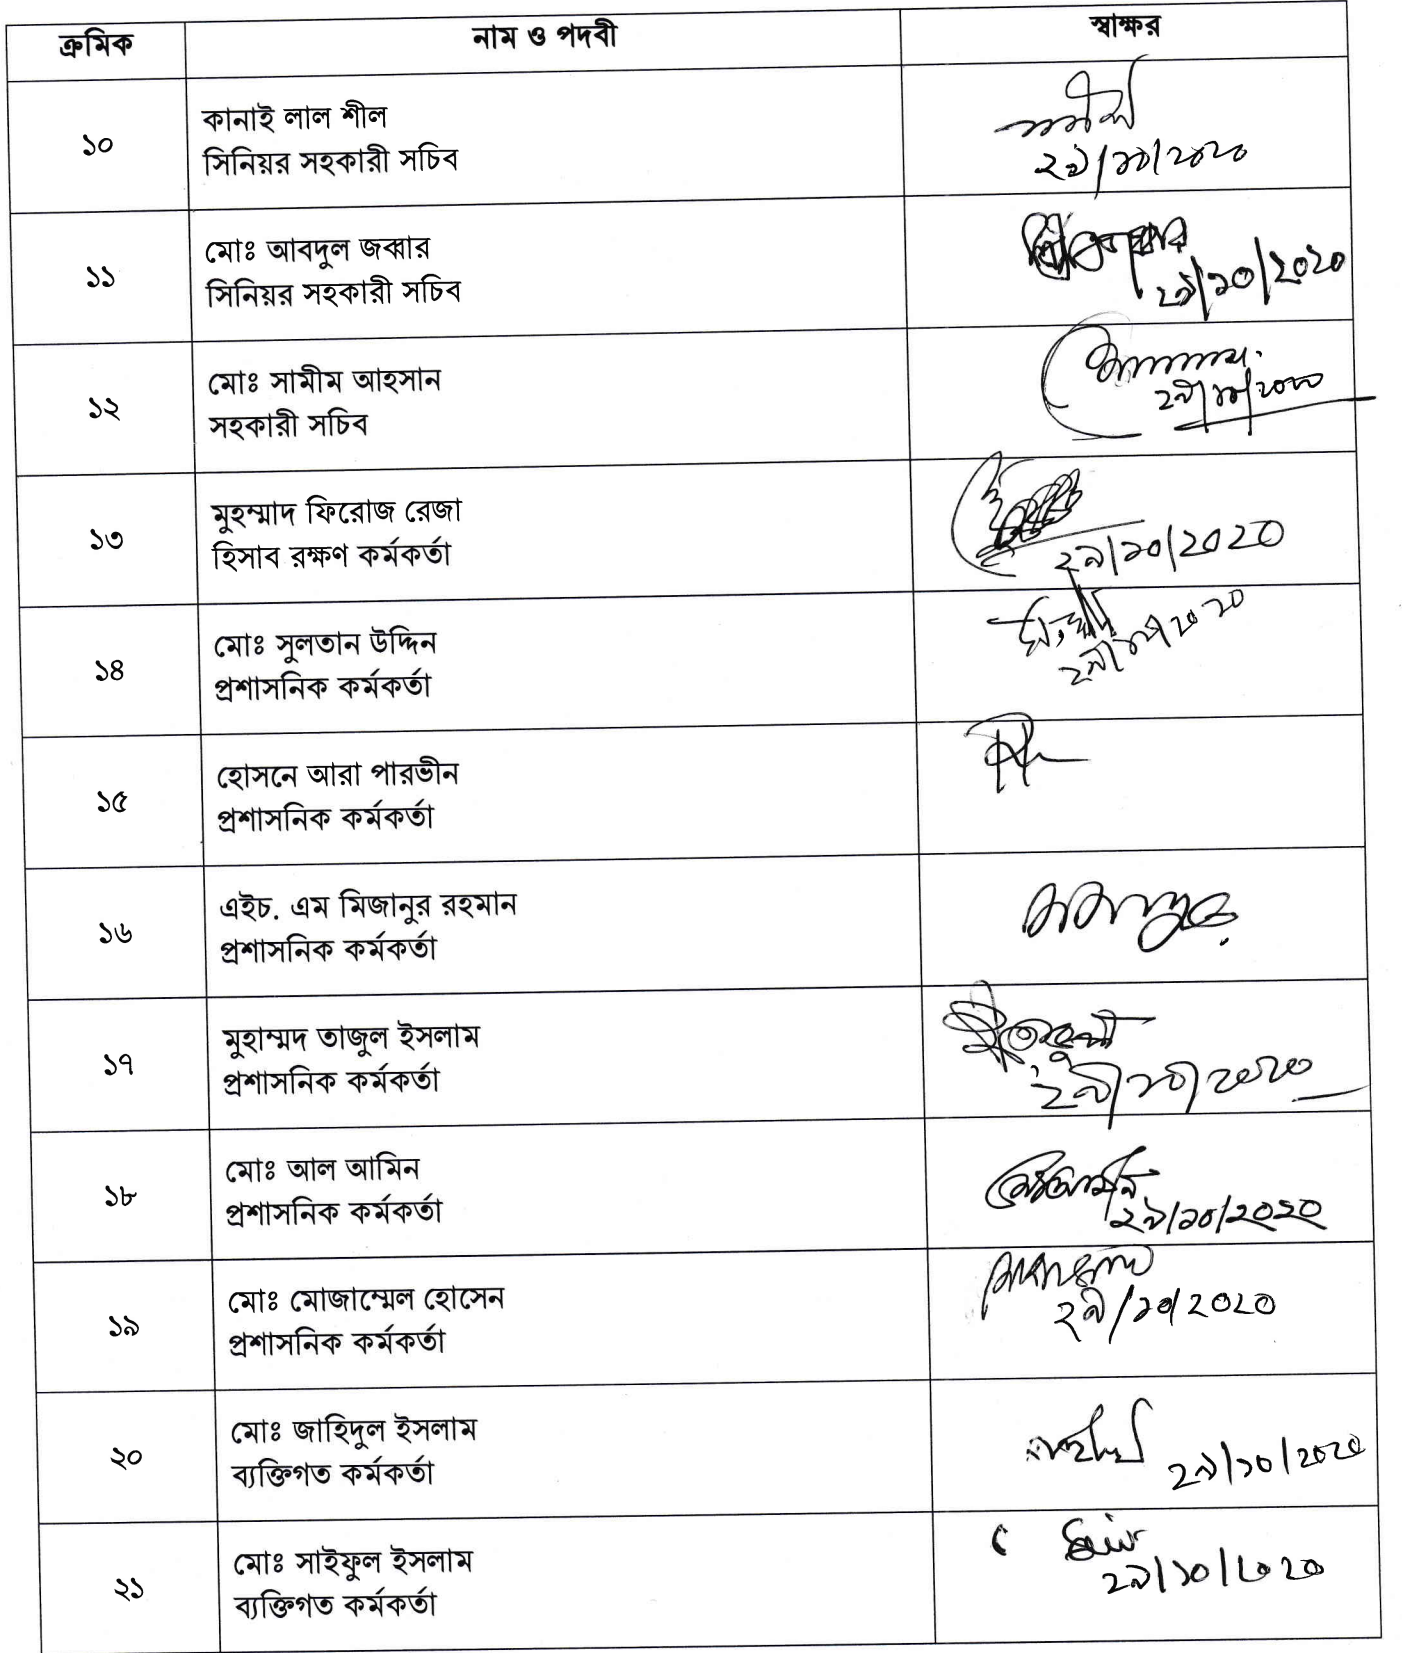 ক্রমিক নাম ও পদবী স্বাক্ষর
১০ কানাই লাল শীল
সিনিয়র সহকারী সচিব
২৯/১০/২০২০
১১ মোঃ আবদুল জব্বার
সিনিয়র সহকারী সচিব
২৯/১০/২০২০
১২ মোঃ সামীম আহসান
সহকারী সচিব
২৯/১০/২০২০
১৩ মুহম্মাদ ফিরোজ রেজা
হিসাব রক্ষণ কর্মকর্তা
২৯/১০/২০২০
১৪ মোঃ সুলতান উদ্দিন
প্রশাসনিক কর্মকর্তা
২৯/১০/২০২০
১৫ হোসনে আরা পারভীন
প্রশাসনিক কর্মকর্তা
১৬ এইচ. এম মিজানুর রহমান
প্রশাসনিক কর্মকর্তা
১৭ মুহাম্মদ তাজুল ইসলাম
প্রশাসনিক কর্মকর্তা
২৯/১০/২০২০
১৮ মোঃ আল আমিন
প্রশাসনিক কর্মকর্তা
২৯/১০/২০২০
১৯ মোঃ মোজাম্মেল হোসেন
প্রশাসনিক কর্মকর্তা
২৯/১০/২০২০
২০ মোঃ জাহিদুল ইসলাম
ব্যক্তিগত কর্মকর্তা
২৯/১০/২০২০
২১ মোঃ সাইফুল ইসলাম
ব্যক্তিগত কর্মকর্তা
২৯/১০/২০২০